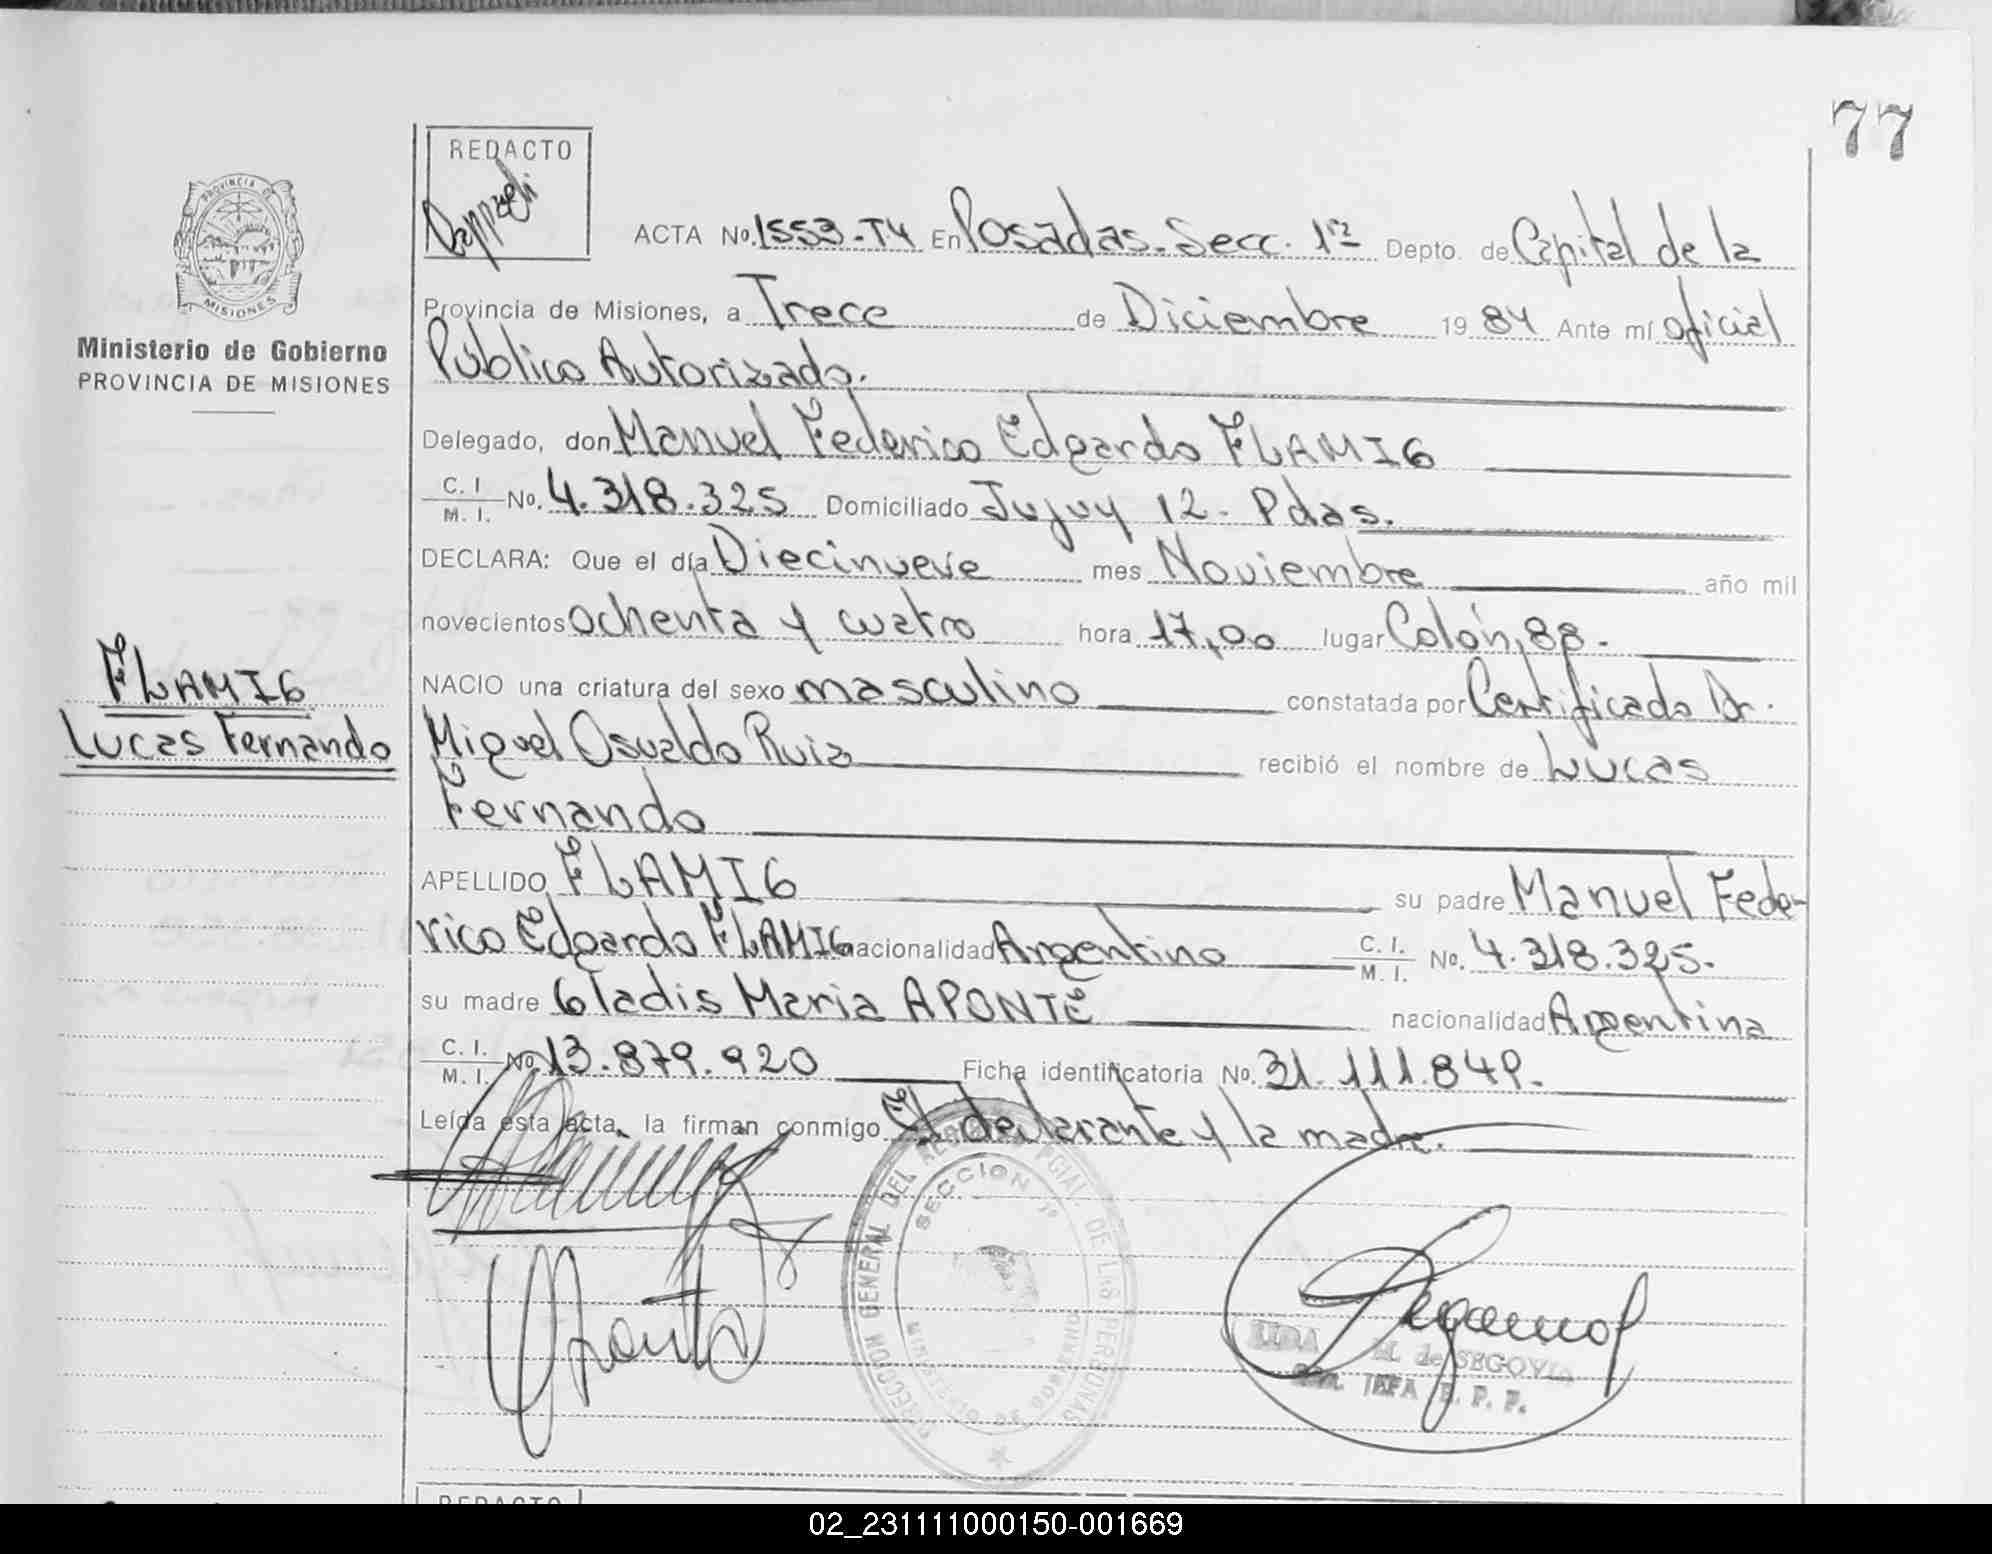 77
REDACTO
PROVINCIA DE
MISIONES
Ministerio de Gobierno
PROVINCIA DE MISIONES
ACTA No. 1553-T4 En Posadas. Secc. 1ra Depto. de Capital de la
Provincia de Misiones, a Trece de Diciembre 19 84 Ante mí oficial
Público Autorizado.
Delegado, don Manuel Federico Edgardo FLAMIG
C. I. M. I. No. 4.318.325 Domiciliado Jujuy 12. Pdas.
DECLARA: Que el día Diecinueve mes Noviembre año mil
novecientos ochenta y cuatro hora 17,00 lugar Colón, 88.
FLAMIG
Lucas Fernando
NACIO una criatura del sexo masculino constatada por Certificado Dr.
Miguel Osvaldo Ruiz recibió el nombre de Lucas
Fernando
APELLIDO FLAMIG su padre Manuel Fede-
rico Edgardo FLAMIG nacionalidad Argentino C. I. M. I. No. 4.318.325.
su madre Gladis Maria APONTE nacionalidad Argentina
C. I. M. I. No. 13.879.920 Ficha identificatoria No. 31.111.849.
Leída esta acta, la firman conmigo El declarante y la madre.
DIRECCION GENERAL DEL REGISTRO PCIAL. DE LAS PERSONAS
SECCION 1ª
MINISTERIO DE GOBIERNO
Aponte
M. de SEGOVIA
JEFA R. P. P.
REDACTO
02_231111000150-001669